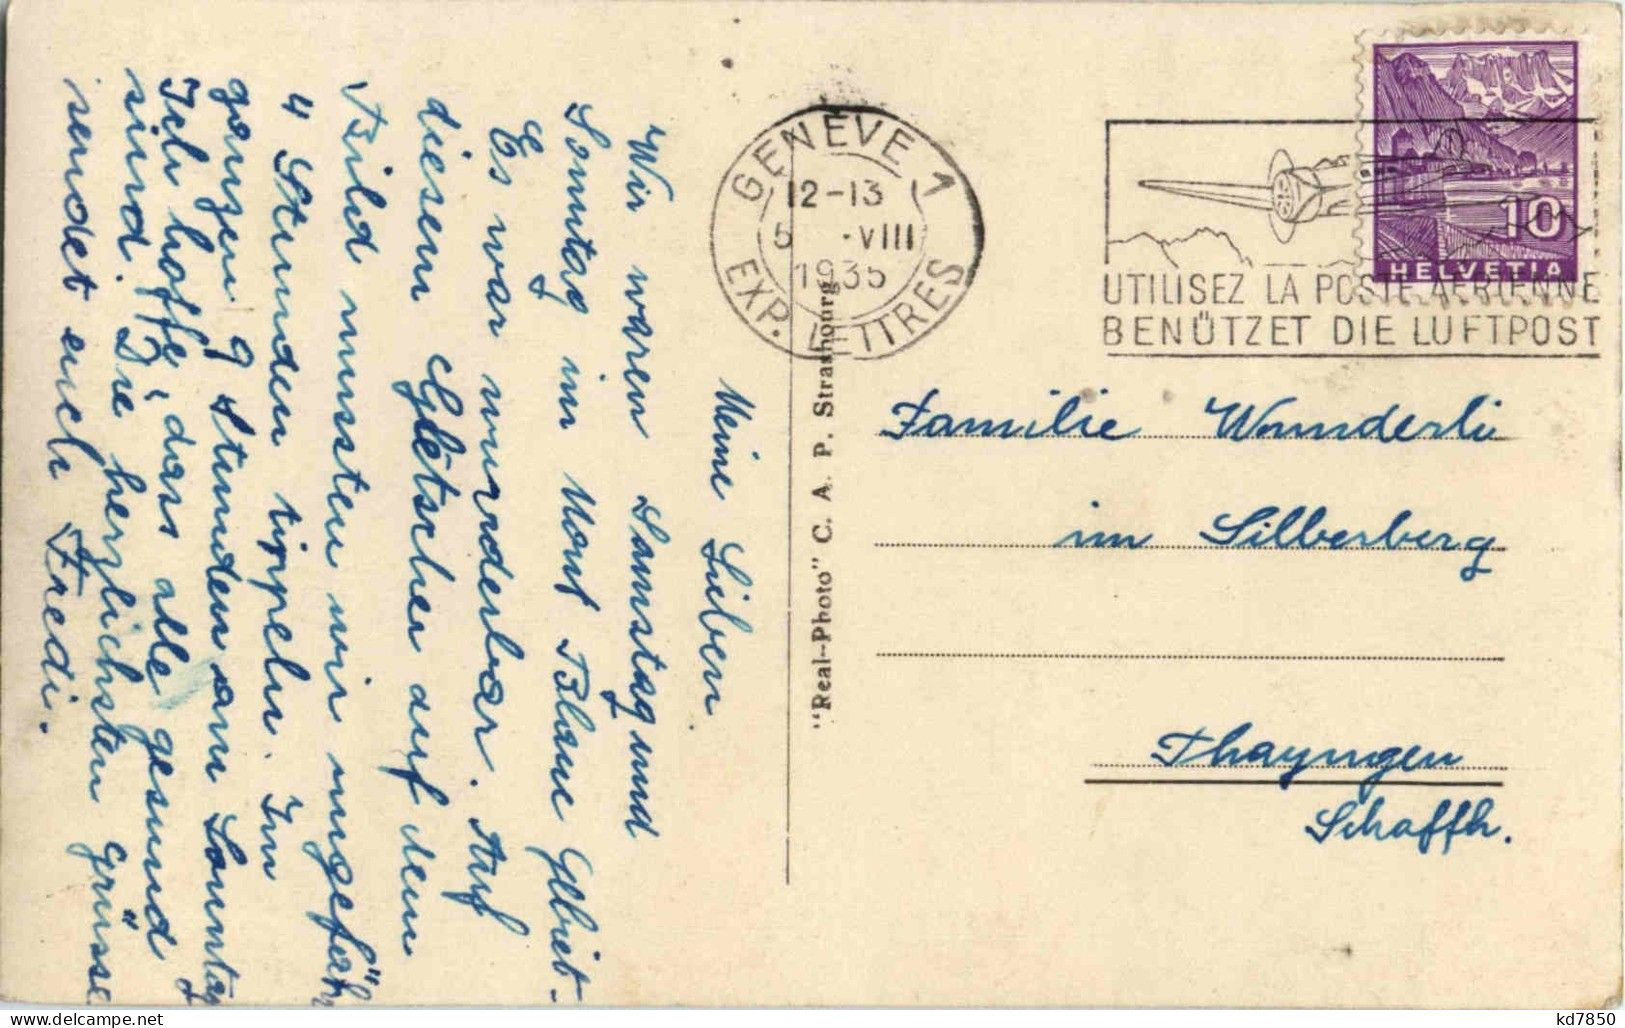 Meine Lieben.
Wir waren Samstag und
Sonntag im Mont Blanc Gebiet.
Es war wunderbar. Auf
diesem Gletscher auf dem
Bild mussten wir ungefähr
4 Stunden tippeln. Im
ganzen 9 Stunden am Sonntag
Ich hoffe, dass alle gesund
sind. Die herzlichsten Grüsse
sendet euch Fredi.
"Real-Photo" C. A. P. Strasbourg
GENEVE 1
12-13
5 .VIII
1935
EXP. LETTRES
10
HELVETIA
UTILISEZ LA POSTE AERIENNE
BENÜTZET DIE LUFTPOST
Familie Wanderli
im Silberberg
Thayngen
Schaffh.
kd7850